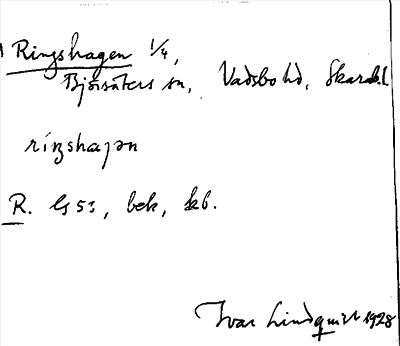 Ringshagen 1/4,
Björsäters sn, Vadsbo hd, Skarab.l
R. Gs 53, bek, kb.
Ivar Lindquist 1928